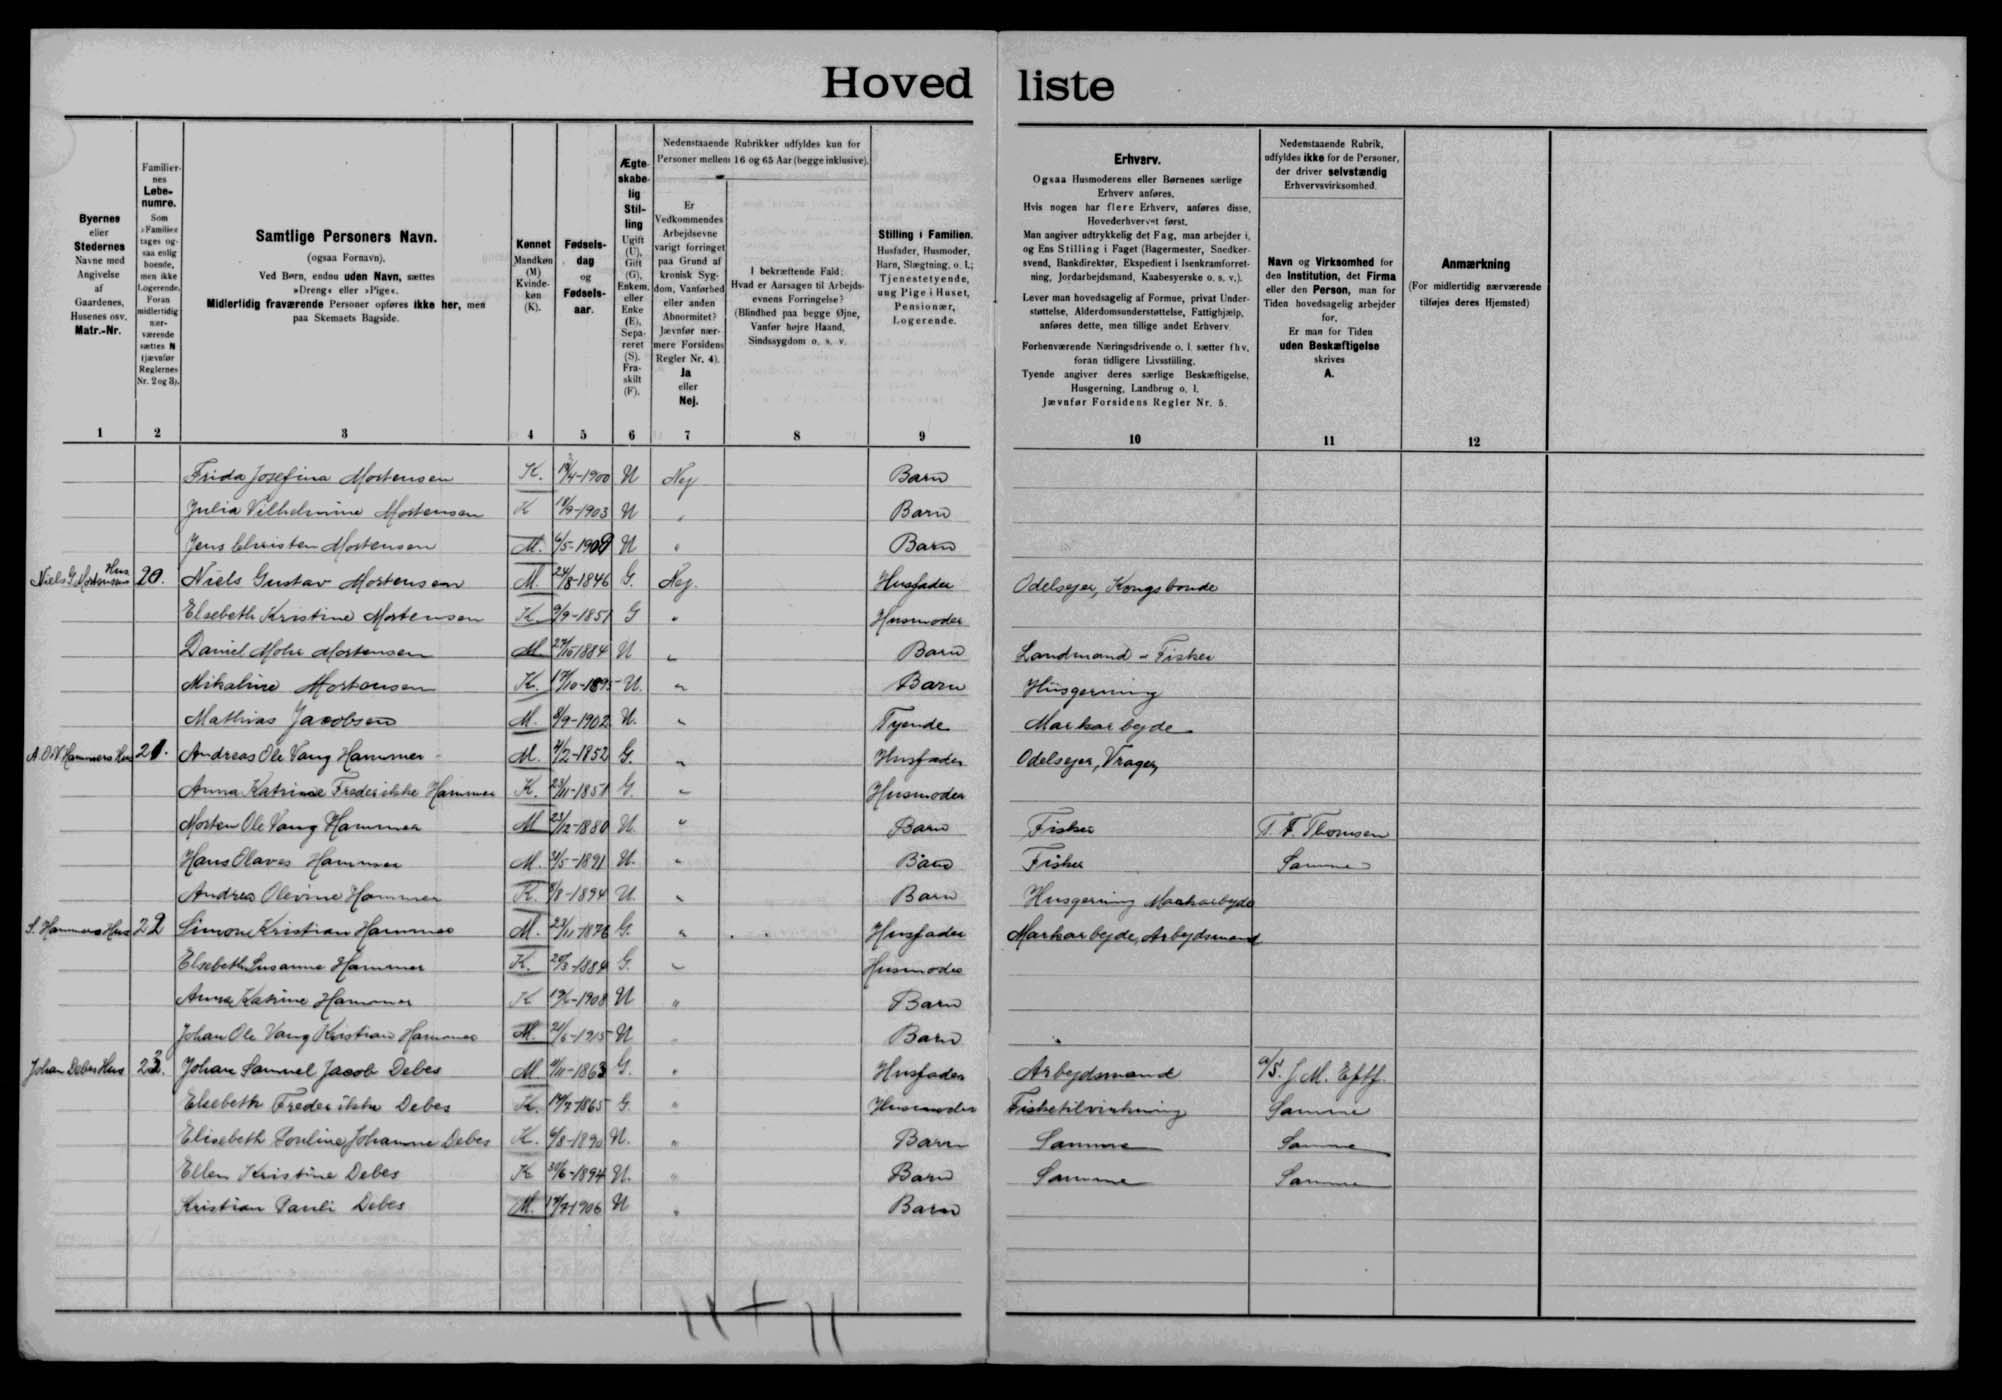 Hoved liste
Byernes eller Stedernes Navne med Angivelse af Gaardenes, Husenes osv. Matr.-Nr.
Familiernes Løbenumre. Som »Familie« tages ogsaa enlig boende, men ikke Logerende. Foran midlertidig nærværende sættes N (jævnfør Reglernes Nr. 2 og 3).
Samtlige Personers Navn.
(ogsaa Fornavn).
Ved Børn, endnu uden Navn, sættes
»Dreng« eller »Pige«.
Midlertidig fraværende Personer opføres ikke her, men
paa Skemaets Bagside.
Kønnet Mandkøn (M) Kvindekøn (K).
Fødselsdag og Fødselsaar.
Ægteskabelig Stilling Ugift (U), Gift (G), Enkem. eller Enke (E), Separeret (S). Fraskilt (F).
Nedenstaaende Rubrikker udfyldes kun for
Personer mellem 16 og 65 Aar (begge inklusive).
Er Vedkommendes Arbejdsevne varigt forringet paa Grund af kronisk Sygdom, Vanførhed eller anden Abnormitet? Jævnfør nærmere Forsidens Regler Nr. 4). Ja eller Nej.
I bekræftende Fald: Hvad er Aarsagen til Arbejdsevnens Forringelse? (Blindhed paa begge Øjne, Vanfør højre Haand, Sindssygdom o. s. v.
Stilling i Familien. Husfader, Husmoder, Barn, Slægtning, o. l.; Tjenestetyende, ung Pige i Huset, Pensionær, Logerende.
Erhverv.
Ogsaa Husmoderens eller Børnenes særlige
Erhverv anføres.
Hvis nogen har flere Erhverv, anføres disse,
Hovederhvervet først.
Man angiver udtrykkelig det Fag, man arbejder i,
og Ens Stilling i Faget (Bagermester, Snedkersvend, Bankdirektør, Ekspedient i Isenkramforretning, Jordarbejdsmand, Kaabesyerske o. s. v.).
Lever man hovedsagelig af Formue, privat Understøttelse, Alderdomsunderstøttelse, Fattighjælp,
anføres dette, men tillige andet Erhverv
Forhenværende Næringsdrivende o. l. sætter fhv.
foran tidligere Livsstilling.
Tyende angiver deres særlige Beskæftigelse,
Husgerning, Landbrug o. l.
Jævnfør Forsidens Regler Nr. 5.
Nedenstaaende Rubrik,
udfyldes ikke for de Personer,
der driver selvstændig
Erhvervsvirksomhed.
Navn og Virksomhed for
den Institution, det Firma
eller den Person, man for
Tiden hovedsagelig arbejder
for.
Er man for Tiden
uden Beskæftigelse
skrives
A.
Anmærkning
(For midlertidig nærværende
tilføjes deres Hjemsted)
1 2 3 4 5 6 7 8 9 10 11 12
Frida Josefina Mortensen K. 19/4-1900 U Nej Barn
Julia Vilhelmine Mortensen K 18/9-1903 U " Barn
Jens Christen Mortensen M. 6/5-1909 U " Barn
Niels G. Mortensens Hus 20. Niels Gustav Mortensen M. 24/8-1846 G. Nej. Husfader Odelsejer, Kongsbonde
Elsebeth Kristine Mortensen K 9/9-1851 G " Husmoder
Daniel Mohr Mortensen M 27/10 1884 U " Barn Landmand - Fisker
Mikaline Mortensen K. 17/10-1895 U. " Barn Husgerning
Mathias Jacobsen M. 8/9-1902 U. " Tyende Markarbejde
A.O.V. Hammers Hus 21. Andreas Ole Vang Hammer M. 4/2-1852 G. " Husfader Odelsejer, Vrager,
Anna Katrine Frederikke Hammer K. 23/11-1851 G. " Husmoder
Morten Ole Vang Hammer M 23/12-1880 U. " Barn Fisker T. F. Thomsen
Hans Olaves Hammer M. 21/5-1891 U. " Barn Fisker Samme
Andrea Olevine Hammer K. 8/8-1894 U. " Barn Husgerning Markarbejde
S. Hammers Hus 22 Simon Kristian Hammer M. 23/11-1876 G. " Husfader Markarbejde, Arbejdsmand
Elsebeth Susanne Hammer K. 20/3-1884 G. " Husmoder
Anna Katrine Hammer K 19/6-1908 U " Barn
Johan Ole Vang Kristian Hammer M. 21/6-1915 U " Barn
Johan Debes Hus 23. Johan Samuel Jacob Debes M. 11/11-1863 G. " Husfader Arbejdsmand A/S. J. M. Eftf.
Elsebeth Frederikke Debes K. 17/7-1865 G. " Husmoder Fisketilvirkning Samme
Elisebeth Pouline Johanne Debes K. 6/8-1890 U. " Barn Samme Samme
Ellen Kristine Debes K 30/6-1894 U. " Barn Samme Samme
Kristian Pauli Debes M. 17/7 1906 U " Barn
11 + 11